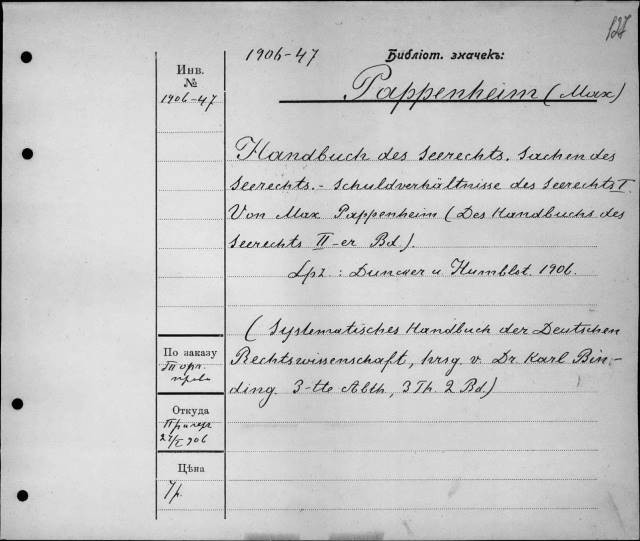 127
1906-47
Библіот. значекъ:
Инв.
№
1906-47
Pappenheim (Max)
Handbuch des Seerechts. Sachen des
Seerechts. - Schuldverhältnisse des Seerechts I.
Von Max Pappenheim (Des Handbuchs des
Seerechts II-er Bd.).
Lpz : Duncker u Humblot. 1906.
(Systematisches Handbuch der Deutschen
Rechtswissenschaft, hrsg. v. Dr. Karl Bin-
ding. 3-tte Abth, 3 Th. 2 Bd.)
По заказу
Откуда
906
Цѣна